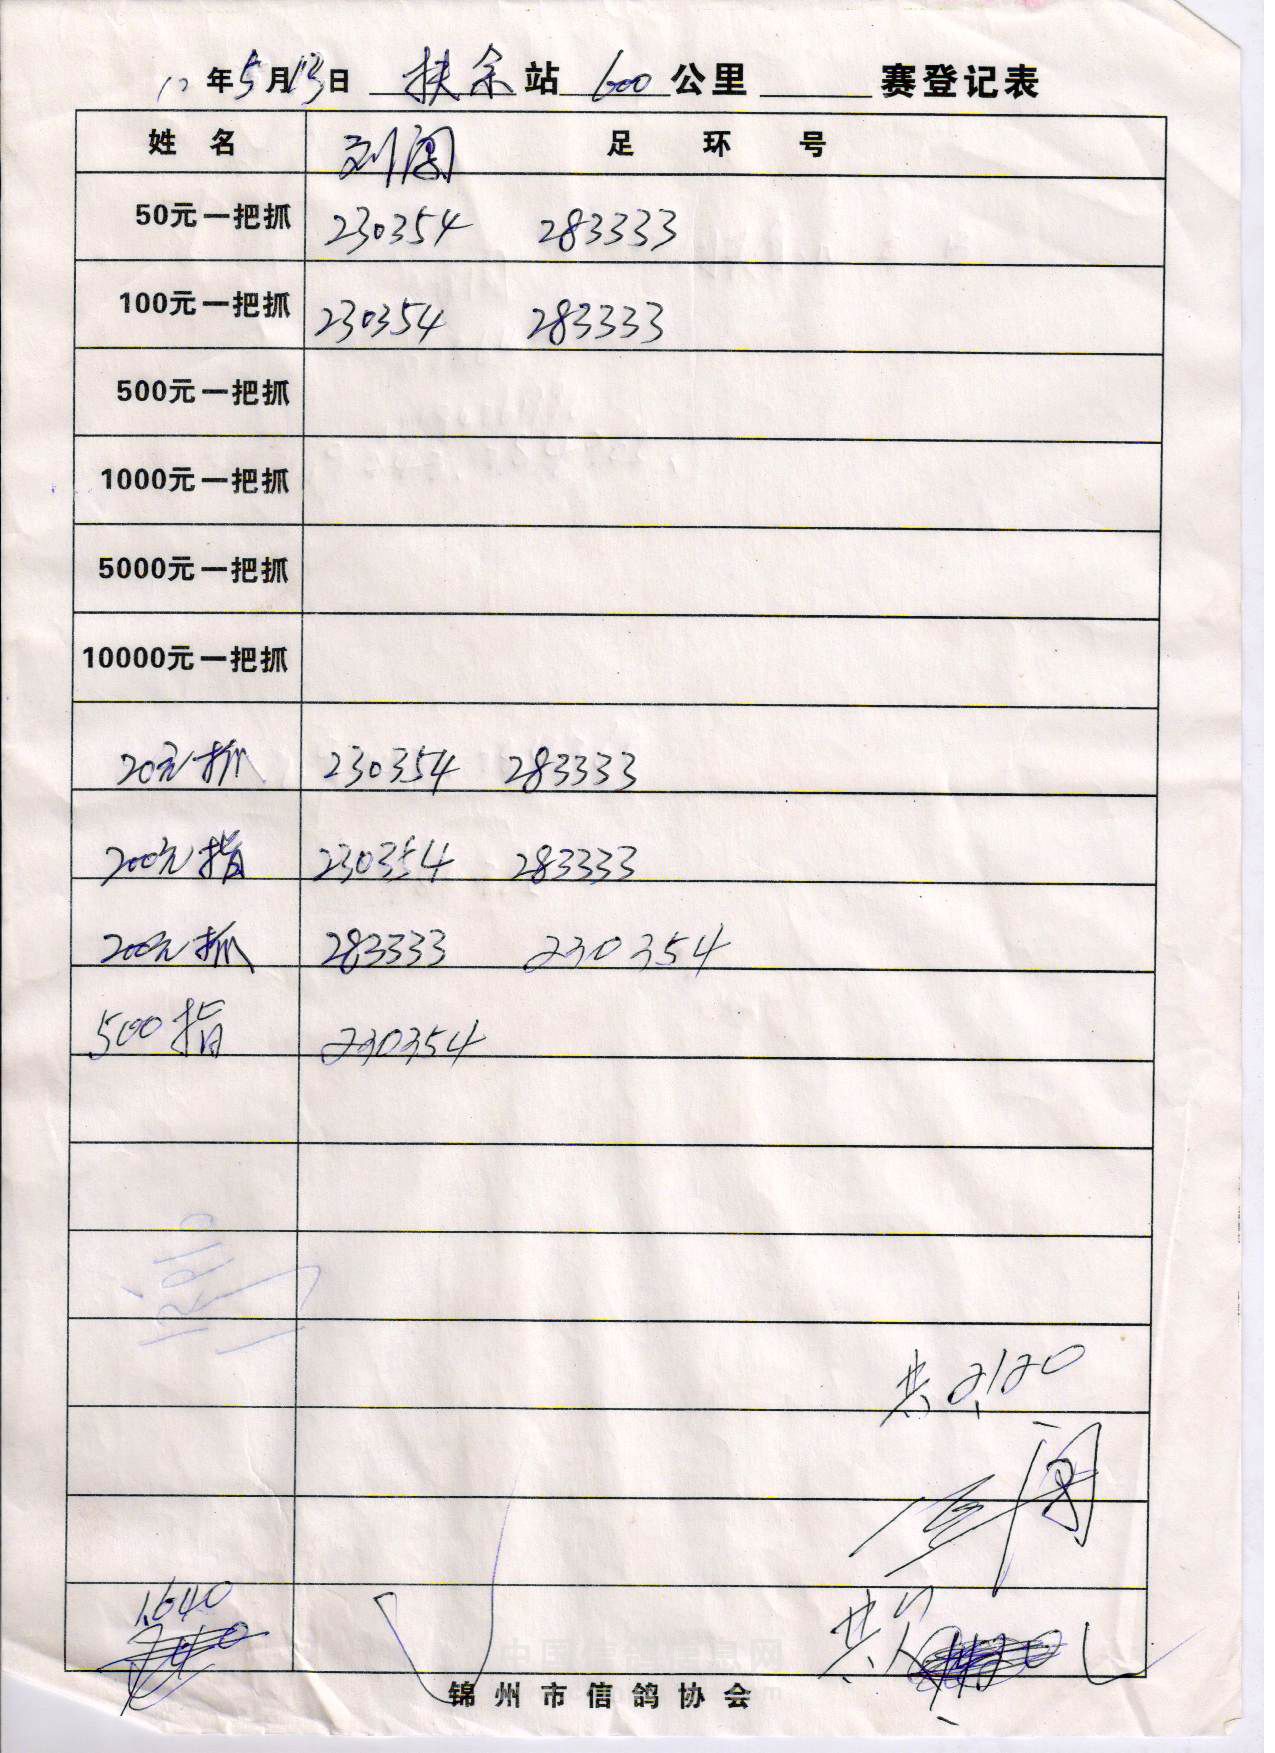 12年5月13日 扶余站 600公里 赛登记表
姓名 刘阁 足环号
50元一把抓 230354 283333
100元一把抓 230354 283333
500元一把抓
1000元一把抓
5000元一把抓
10000元一把抓
20元抓 230354 283333
200元指 230354 283333
200元抓 283333 230354
500指 230354
共2120
1640
740
共
锦州市信鸽协会